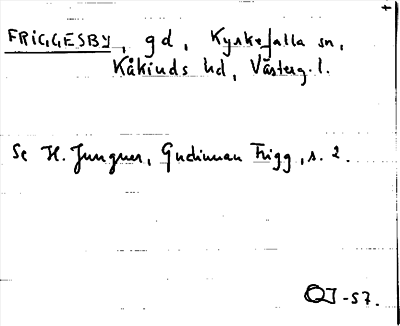 FRIGGESBY, gd, Kyrkefalla sn,
Kåkinds hd, Västerg. l.
Se H. Jungner, Gudinnan Frigg, s. 2.
OJ -57.